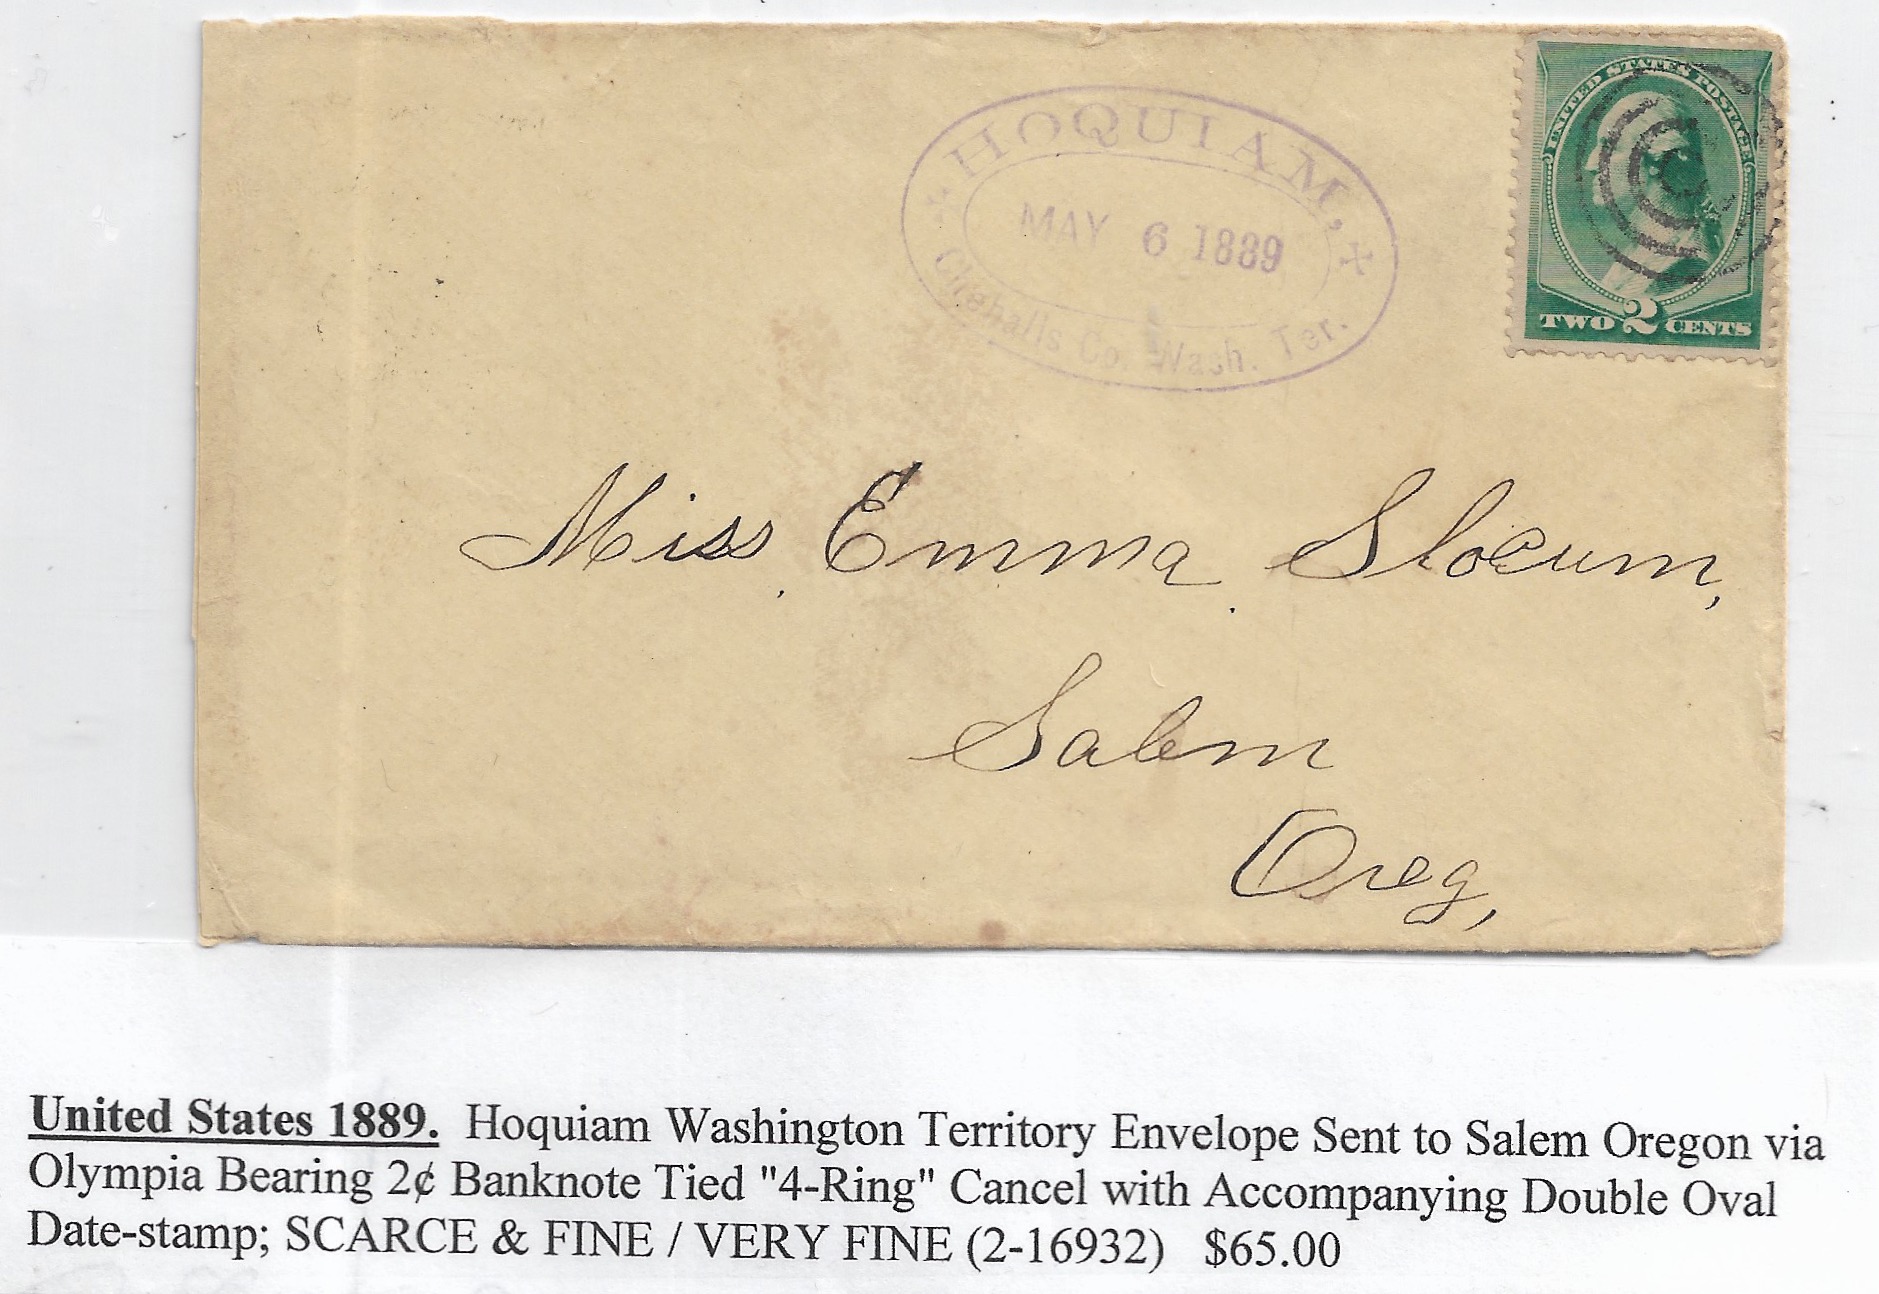 HOQUIAM,
MAY 6 1889
Chehalis Co. Wash. Ter.
UNITED STATES POSTAGE
TWO 2 CENTS
Miss. Emma Slocum,
Salem
Oreg,
United States 1889. Hoquiam Washington Territory Envelope Sent to Salem Oregon via
Olympia Bearing 2¢ Banknote Tied "4-Ring" Cancel with Accompanying Double Oval
Date-stamp; SCARCE & FINE / VERY FINE (2-16932) $65.00